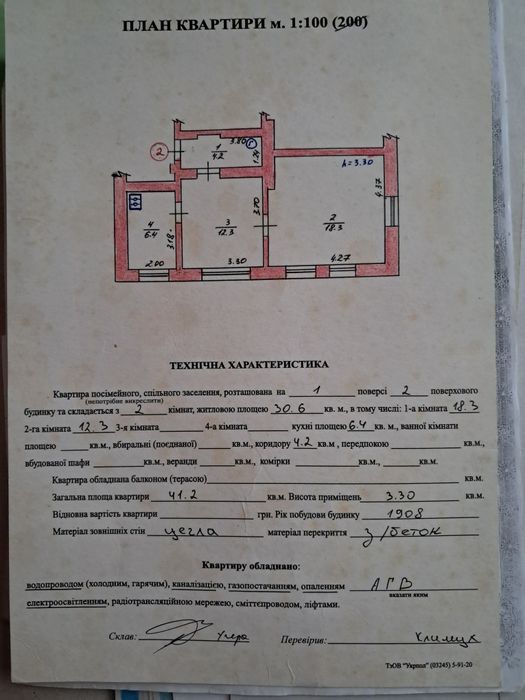 ПЛАН КВАРТИРИ м. 1:100 (200)
2
1
4.2
3.80
Г
1.24
h=3.30
4
6.4
3.18
2.00
3
12.3
3.70
3.30
2
18.3
4.37
4.27
ТЕХНІЧНА ХАРАКТЕРИСТИКА
Квартира посімейного, спільного заселення, розташована на 1 поверсі 2 поверхового
(непотрібне викреслити)
будинку та складається з 2 кімнат, житловою площею 30.6 кв. м., в тому числі: 1-а кімната 18.3
2-га кімната 12.3 3-я кімната 4-а кімната кухні площею 6.4 кв. м., ванної кімнати
площею кв.м., вбиральні (поєднаної) кв.м., коридору 4.2 кв.м , передпокою кв.м.,
вбудованої шафи кв.м., веранди кв.м., комірки кв.м.,
Квартира обладнана балконом (терасою) кв.м.
Загальна площа квартири 41.2 кв.м. Висота приміщень 3.30 кв.м.
Відновна вартість квартири грн. Рік побудови будинку 1908
Матеріал зовнішніх стін цегла матеріал перекриття з/бетон
Квартиру обладнано:
водопроводом (холодним, гарячим), каналізацією, газопостачанням, опаленням АГВ
вказати яким
електроосвітленням, радіотрансляційною мережею, сміттєпроводом, ліфтами.
Склав: Перевірив: Климук
ТзОВ "Укрпол" (03245) 5-91-20